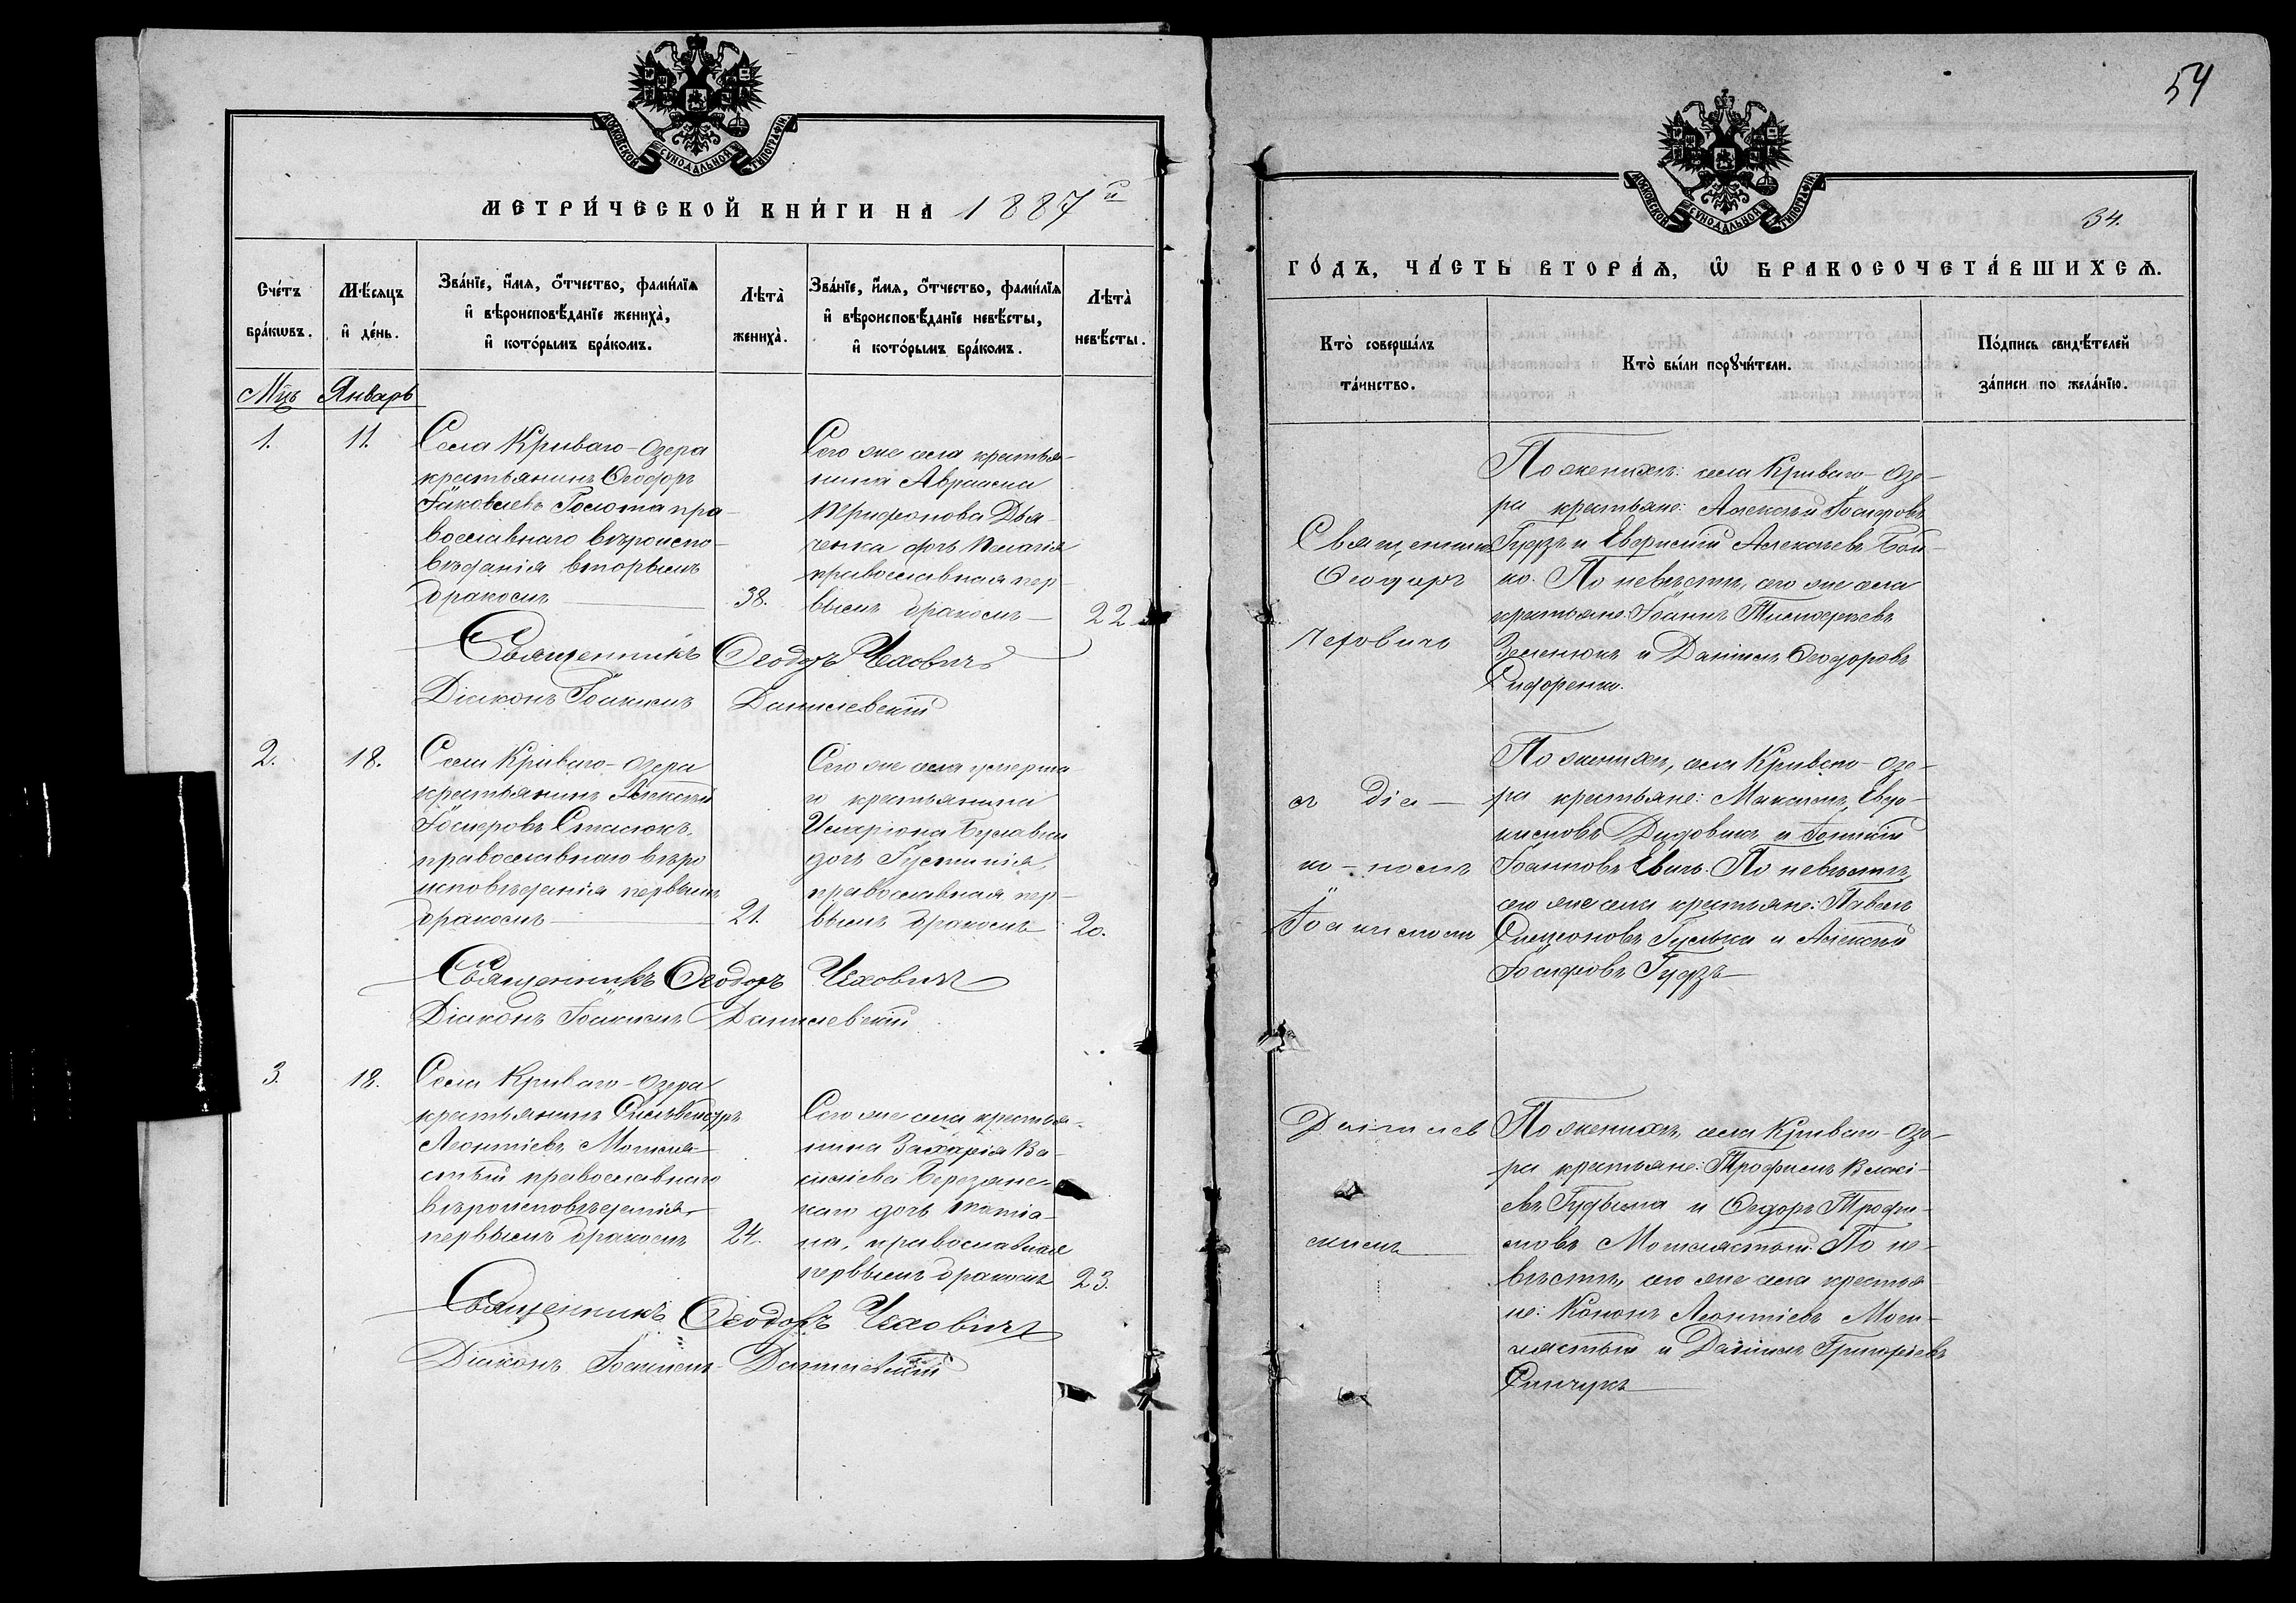 МОСКОВСКОЙ СѴНОДАЛЬНОЙ ТИПОГРАФІИ
МЕТРИ́ЧЕСКОЙ КНИ́ГИ НА 1887й
Сче́тъ бра́кωвъ.
Мѣ́сяцъ и҆ де́нь.
Зва́нїе, и҆́мѧ, ѻ҆́тчество, фами́лїѧ
и҆ вѣроисповѣ́данїе жениха̀,
и҆ кото́рымъ бра́комъ.
Лѣта̀ жениха̀.
Зва́нїе, и҆́мѧ, ѻ҆́тчество, фами́лїѧ
и҆ вѣроисповѣ́данїе невѣ́сты,
и҆ кото́рымъ бра́комъ.
Лѣта̀ невѣ́сты.
Мцъ Январь
1.
11.
Села Криваго-Озера
крестьянинъ Ѳеодоръ
Іаковлевъ Голота пра-
вославнаго вѣроиспо-
вѣданія вторымъ
бракомъ
38.
Сего же села крестья-
нина Авраама
Трифонова Дья-
ченка дочь Пелагія
православная пер-
вымъ бракомъ
22
Священникъ Ѳеодоръ Чеховичъ
Діаконъ Іоакимъ Данилевскій
2.
18.
Села Криваго-Озера
крестьянинъ Алексѣй
Іосифовъ Стасюкъ,
православнаго вѣро
исповѣданія первымъ
бракомъ
21.
Сего же села умерша
го крестьянина
Иларіона
дочь Іустинія,
православная пер-
вымъ бракомъ
20.
Священникъ Ѳеодоръ Чеховичъ
Діаконъ Іоакимъ Данилевскій
3.
18.
Села Криваго-Озера
крестьянинъ Сильвестръ
Леонтіевъ Мотиля-
стый православнаго
вѣроисповѣданія
первымъ бракомъ
24.
Сего же села крестья-
нина Захарія Ва-
силіева Березянс-
каго дочь Татіа-
на, православная
первымъ бракомъ
23.
Священникъ Ѳеодоръ Чеховичъ
Діаконъ Іоакимъ Данилевскій
54
МОСКОВСКОЙ СѴНОДАЛЬНОЙ ТИПОГРАФІИ
34.
ГО́ДЪ, ЧА́СТЬ ВТОРА́Ѧ, Ѽ БРАКОСОЧЕТА́ВШИХСѦ.
Кто̀ соверша́лъ
та́инство.
Кто̀ бы́ли порꙋчи́тели.
По́дпись свидѣ́телей
за́писи по жела́нїю.
Священникъ
Ѳеодоръ
Чеховичъ
съ діа-
ко-номъ
Іоакимомъ
Данилев
скимъ
По женихѣ: села Криваго-Озе-
ра крестьяне: Алексѣй Іосифовъ
Гудзъ и Алексѣевъ Бой-
ко. По невѣстѣ, сего же села
крестьяне: Іоаннъ Тимоѳеевъ
Зеленюкъ и Даніилъ Ѳеодоровъ
Сидоренко.
По женихѣ, села Криваго-Озе-
ра крестьяне: Максимъ Евдо-
кимовъ Дидовикъ и
Іоанновъ По невѣстѣ,
сего же села крестьяне: Павелъ
Симеоновъ Гулька и Алексѣй
Іосифовъ Гудзъ
По женихѣ, села Криваго-Озе-
ра крестьяне: Трофимъ Власі-
евъ Гудыма и Ѳеодоръ Трофи-
мовъ Мотилястый. По не-
вѣстѣ, сего же села крестья
не: Кононъ Леонтіевъ Моти-
лястый и Даніилъ Григоріевъ
Синчукъ